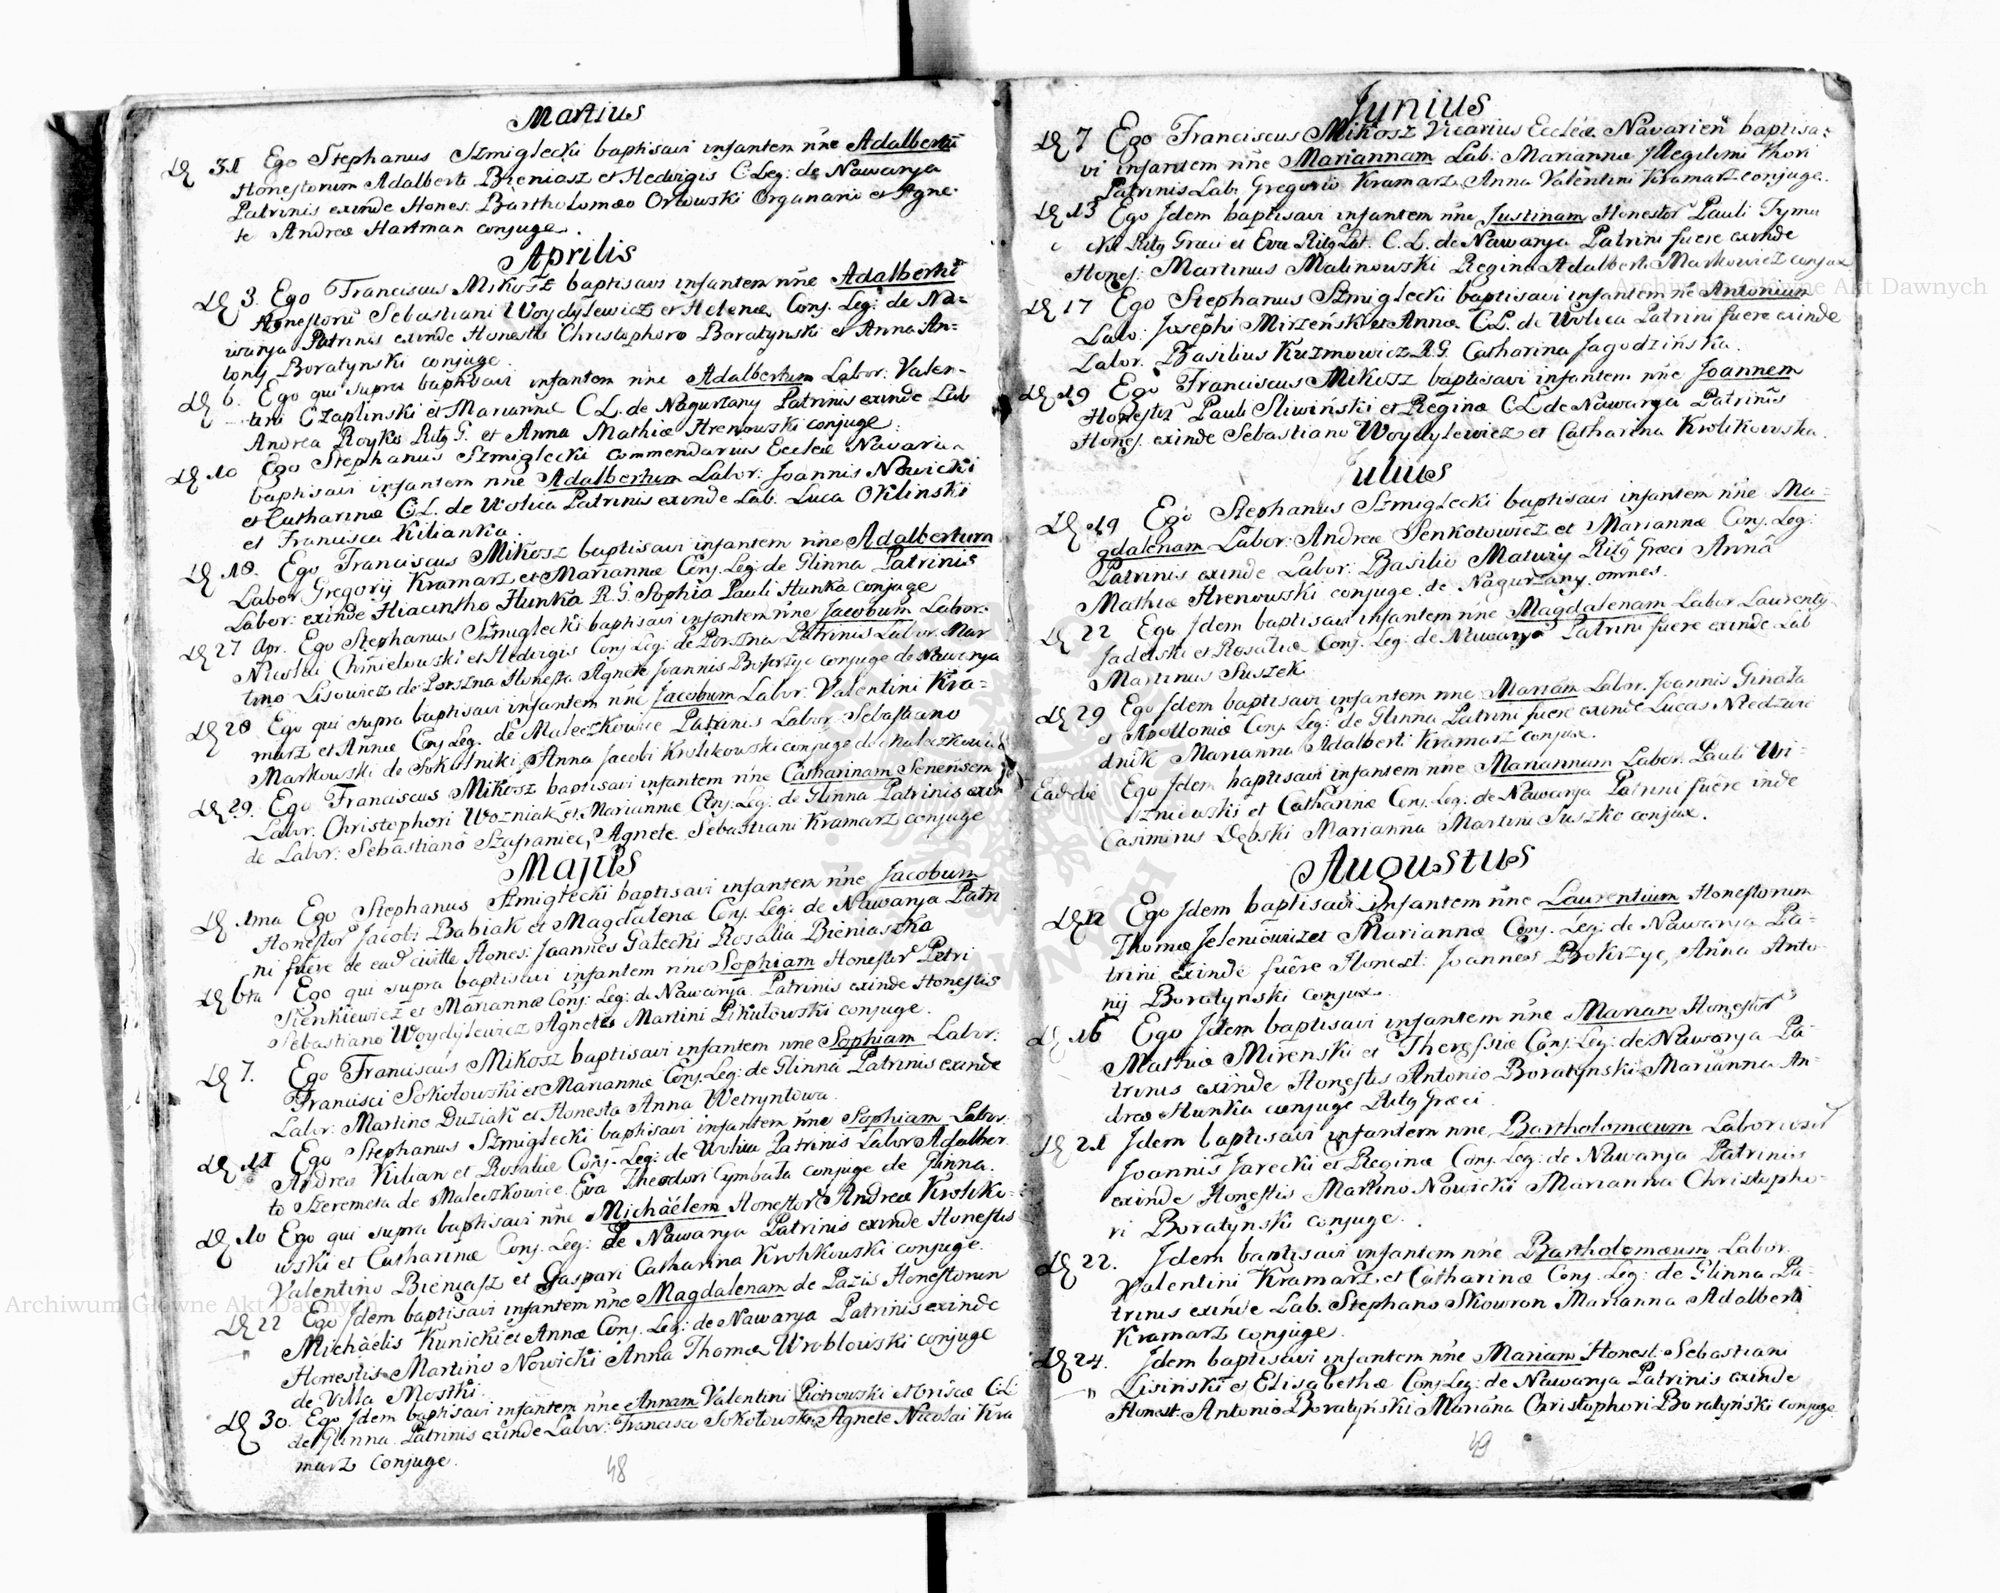 Martius
D 31 Ego Stephanus Szmiglecki baptisavi infantem nne Adalbertũ
Honestorum Adalberti Bieniasz et Hedvigis C. Leg: de Nawarya
Patrinis exinde Hones: Bartholomæo Orłowski Organario et Agne-
te Andreæ Hartman conjuge.
Aprilis
D 3. Ego Franciscus Mikosz baptisavi infantem nne Adalbertũ
Honestorũ Sebastiani Woydylewicz et Helenæ Conj. Leg: de Na=
warya Patrinis exinde Honestis Christophoro Boratynski et Anna An=
tonij Boratynski conjuge.
D 6. Ego qui supra baptisavi infantem nne Adalbertum Labor: Valen-
tini Czaplinski et Mariannæ C.L. de Nagurzany Patrinis exinde Lab
Andrea Royko Ritg G. et Anna Mathiæ Hrenowski conjuge.
D 10 Ego Stephanus Szmiglecki commendarius Eccleæ Navarien
baptisavi infantem nne Adalbertum Labor: Joannis Nowicki
et Catharinæ C.L. de Wolica Patrinis exinde Lab. Luca Oklinski
et Francisca Kilianka.
D 18. Ego Franciscus Mikosz baptisavi infantem nne Adalbertum
Labor Gregorij Kramarz et Mariannæ Conj. Leg: de Glinna Patrinis
Labor: exinde Hiacintho Hunka R.G. Sophia Pauli Hunka conjuge
D 27 Apr. Ego Stephanus Szmiglecki baptisavi infantem nne Jacobum Labor.
Nicolai Chmielowski et Hedvigis Conj Leg: de Porszna Patrinis Labor: Mar
tino Lisowicz de Porszna Honesta Agnete Joannis conjuge de Nawarya
D 28 Ego qui supra baptisavi infantem nne Jacobum Labor: Valentini Kra=
marz et Annæ Conj Leg. de Maleczkowice Patrinis Labor: Sebastiano
Markowski de Sokolniki, Anna Jacobi Krolikowski conjuge de Maleczkowice
D 29. Ego Franciscus Mikosz baptisavi infantem nne Catharinam Senensem
Labor: Christophori Wozniak et Mariannæ Conj. Leg: de Glinna Patrinis exin
de Labor: Sebastiano Szafraniec, Agnete Sebastiani Kramarz conjuge
Majus
D 1ma Ego Stephanus Szmiglecki baptisavi infantem nne Jacobum
Honestor Jacobi Babiak et Magdalenæ Conj. Leg: de Nawarya Patri
ni fuere de ead civitte Hones: Joannes Gałecki Rosalia Bieniaszka
D 6ta Ego qui supra baptisavi infantem nne Sophiam Honestor Petri
Sienkiewicz et Mariannæ Conj: Leg: de Nawarya. Patrinis exinde Honestis
Sebastiano Woydylewicz Agnete Martini Pikulowski conjuge.
D 7. Ego Franciscus Mikosz baptisavi infantem nne Sophiam Labor:
Francisci Sokołowski et Mariannæ Conj. Leg: de Glinna Patrinis exinde
Labor: Martino Duziak et Honesta Anna Wetryntowa.
D 11 Ego Stephanus Szmiglecki baptisavi infantem nne Sophiam Labor:
Andreæ Kilian et Rosaliæ Conj. Leg: de Wolica Patrinis Labor Adalber
to Szeremeta de Maleczkowice Eva Theodori Cymbała conjuge de Glinna.
D 10 Ego qui supra baptisavi nne Michaëlem Honestor Andreæ Kroliko-
wski et Catharinæ Conj. Leg: de Nawarya Patrinis exinde Honestis
Valentino Bieniasz et Gaspari Catharina Krolikowski conjuge.
D 22 Ego Idem baptisavi infantem nne Magdalenam de Pazis Honestorum
Michaëlis Kunicki et Annæ Conj. Leg: de Nawarya Patrinis exinde
Honestis Martino Nowicki Anna Thomæ Wroblowski conjuge
de Villa Mostki.
D 30. Ego Idem baptisavi infantem nne Annam Valentini Piotrowski et C.L
de Glinna. Patrinis exinde Labor: Francisco Sokołowski, Agnete Nicolai Kra
marz Conjuge.
48
Junius
D 7 Ego Franciscus Mikosz Vicarius Eccleæ Navarien baptisa=
vi infantem nne Mariannam Lab: Mariannæ Illegitimi thori
Patrinis Lab: Gregorio Kramarz Anna Valentini Kramarz conjuge.
D 13 Ego Idem baptisavi infantem nne Justinam Honestor Pauli Tymu
Ritg Græci et Eva Ritg Lat. C.L. de Nawarya Patrini fuere exinde
Hones: Martinus Malinowski Regina Adalberti Markowicz conjux
D 17 Ego Stephanus Szmiglecki baptisavi infantem nne Antonium
Labo: Josephi Mirzeński et Annæ C.L. de Wolica Patrini fuere exinde
Labor. Basilius Kuzmowicz R.G. Catharina Jagodzińska.
D 19 Ego Franciscus Mikosz baptisavi infantem nne Joannem
Honestor Pauli Sliwiński et Reginæ C.L. de Nawarya Patrinis
Hones. exinde Sebastiano Woydylewicz et Catharina Krolikowska.
Julius
D 19 Ego Stephanus Szmiglecki baptisavi infantem nne Ma=
gdalenam Labor: Andreæ Senkołowicz et Mariannæ Conj. Leg:
Patrinis exinde Labor: Basilio Matwiy Ritg Græci Anna
Mathiæ Hrenowski conjuge. de Nagurzany. omnes.
D 22 Ego Idem baptisavi infantem nne Magdalenam Labor Laurentij
Jadelski et Rosaliæ Conj. Leg: de Nawarya Patrini fuere exinde Lab
Martinus Suszek
D 29 Ego Idem baptisavi infantem nne Mariam Labor. Joannis Ginała
et Apolloniæ Conj. Leg: de Glinna Patrini fuere exinde Lucas Niedzwie
dnik Marianna Adalberti Kramarz conjux.
Ead die Ego Idem baptisavi infantem nne Mariannam Labor: Pauli Wi=
szniowski et Catharinæ Conj. Leg: de Nawarya Patrini fuere inde
Casimirus Dębski Marianna Martini Suszko conjux.
Augustus
D 12 Ego Idem baptisavi infantem nne Laurentium Honestorum
Thomæ Jeleniowicz et Mariannæ Conj. Leg: de Nawarya Pa=
trini exinde fuere Honest: Joannes Anna Anto
nij Boratynski conjux.
D 16 Ego Idem baptisavi infantem nne Marian Honestor
Mathiæ Mirenski et Theressiæ Conj. Leg: de Nawarya Pa
trinis exinde Honestis Antonio Boratynski Marianna An-
dreæ Hunka conjuge Ritg Græci.
D 21 Idem baptisavi infantem nne Bartholomæum Laboriosor
Joannis Jarecki et Reginæ Conj. Leg: de Nawarya Patrinis
exinde Honestis Martino Nowicki Marianna Christopho-
ri Boratynski conjuge.
D 22. Idem baptisavi infantem nne Bartholomæum Labor.
Valentini Kramarz et Catharinæ Conj. Leg: de Glinna Pa=
trinis exinde Lab. Stephano Skowron Marianna Adalberti
Kramarz conjuge.
D 24. Idem baptisavi infantem nne Mariam Honest: Sebastiani
Lisiński et Elisabethæ Conj Leg: de Nawarya Patrinis exinde
Honest: Antonio Boratyński Mariana Christophori Boratyński conjuge
49
Archiwum Główne Akt Dawnych
Archiwum Główne Akt Dawnych